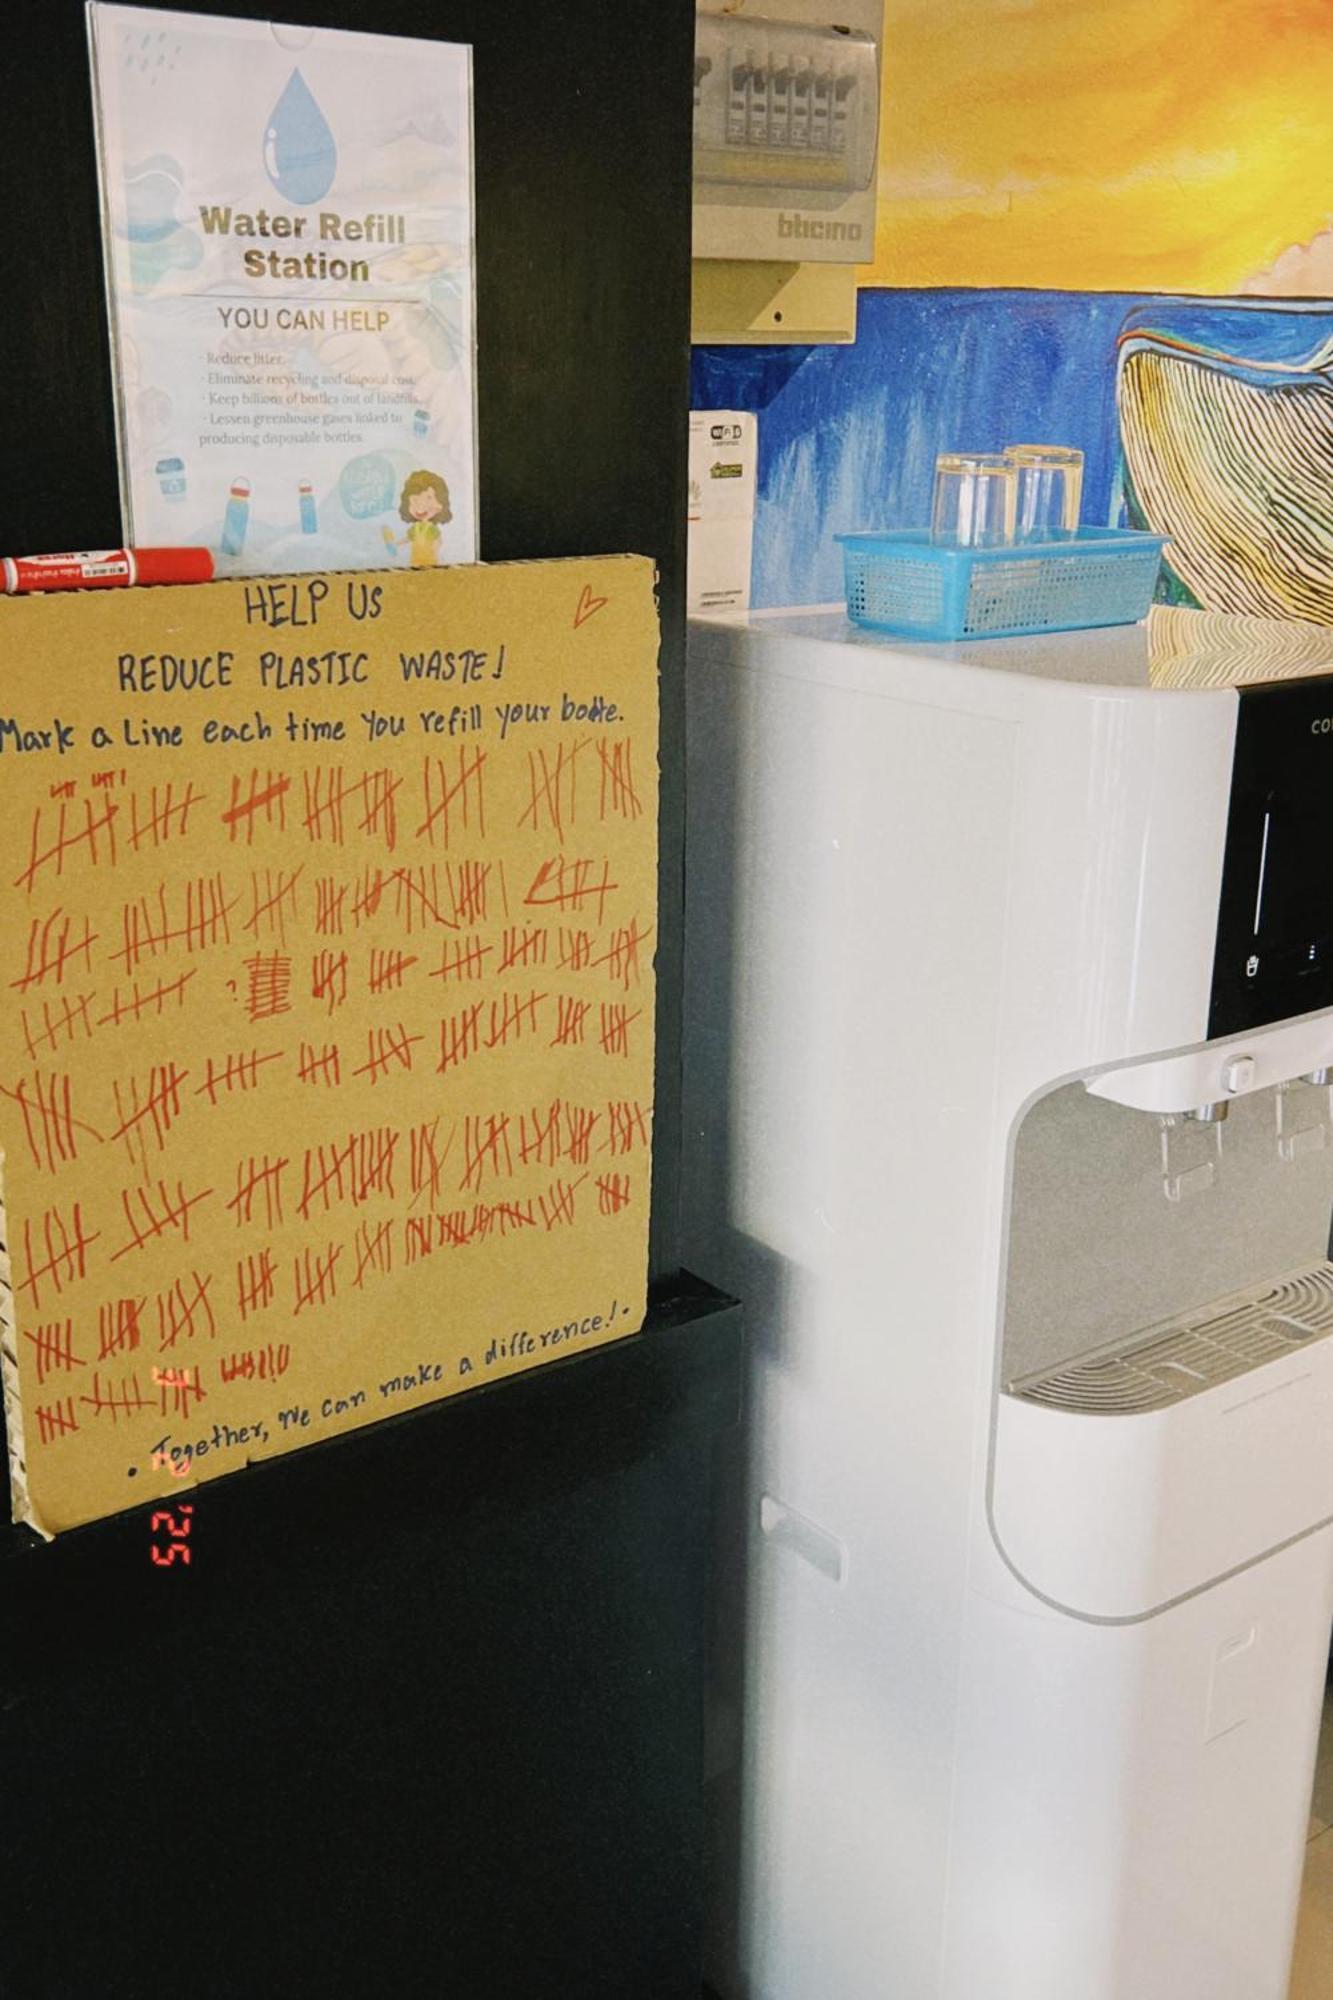 Water Refill
Station
YOU CAN HELP
· Reduce litter.
· Eliminate recycling and disposal cost.
· Keep billions of bottles out of landfills.
· Lessen greenhouse gases linked to
producing disposable bottles.
HELP US
REDUCE PLASTIC WASTE!
Mark a Line each time You refill your bottle.
• Together, We can make a difference! •
bticino
Wi Fi
CERTIFIED